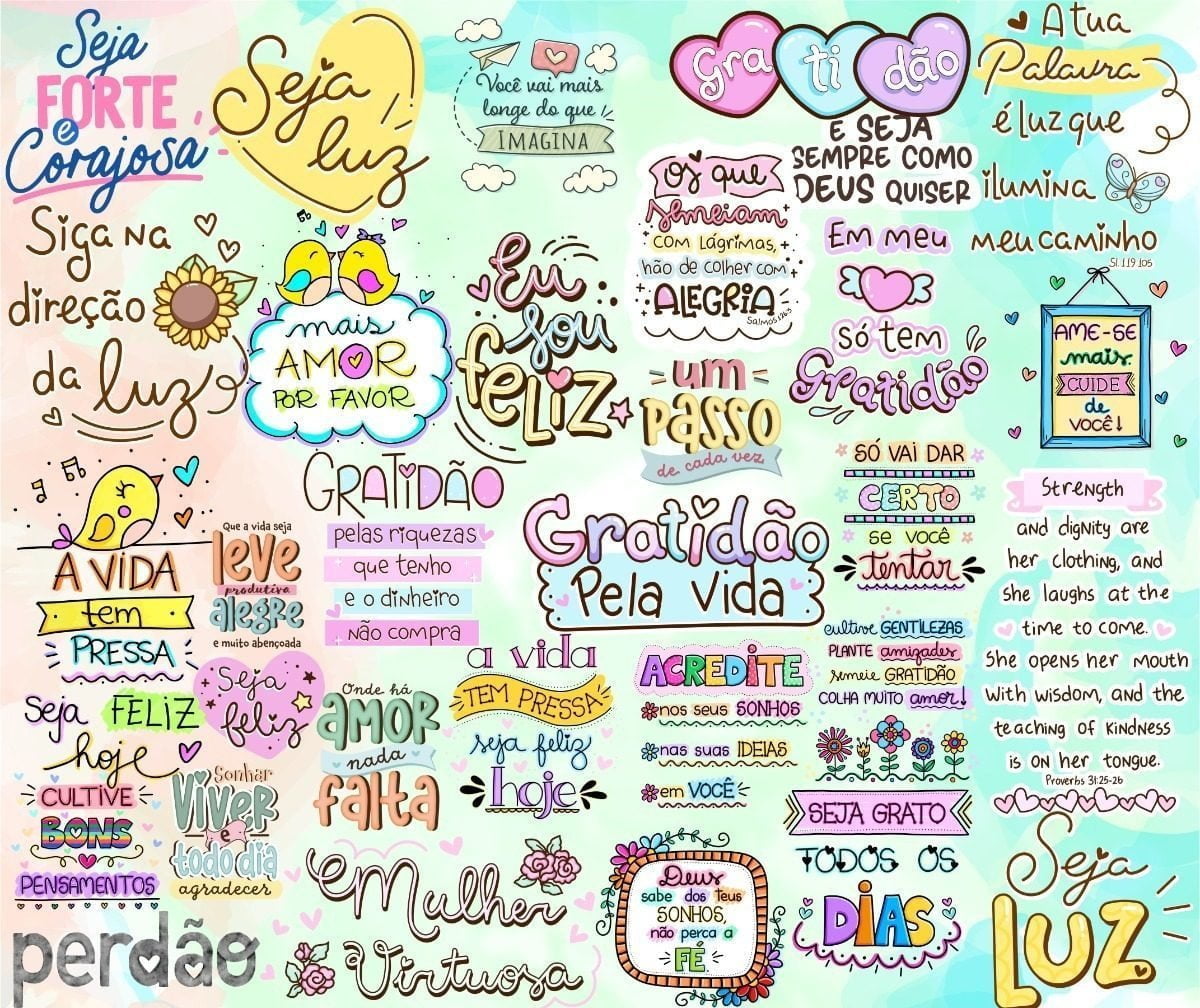 Seja
FORTE
e
Corajosa
Seja
luz
Você vai mais
longe do que
IMAGINA
Gra ti dão
E SEJA
SEMPRE COMO
DEUS QUISER
A tua
Palavra
é luz que
ilumina
meu caminho
Sl. 119.105
Siga na
direção
da luz
mais
AMOR
POR FAVOR
Eu
sou
feliz
OS QUE
semeiam
COM LÁGRIMAS,
HÃO DE COLHER COM
ALEGRIA
Salmos 126.5
Em meu
só tem
Gratidão
AME-SE
mais
CUIDE
de
VOCÊ!
um
PASSO
de cada vez
A VIDA
tem
PRESSA
Seja FELIZ
hoje
Que a vida seja
leve
produtiva
alegre
e muito abençoada
GRATIDÃO
pelas riquezas
que tenho
e o dinheiro
não compra
Gratidão
Pela vida
SÓ VAI DAR
CERTO
SE VOCÊ
tentar
Strength
and dignity are
her clothing, and
she laughs at the
time to come.
She opens her mouth
with wisdom, and the
teaching of kindness
is on her tongue.
Proverbs 31:25-26
Seja
feliz
Onde há
amor
nada
falta
a vida
TEM PRESSA
seja feliz
hoje
ACREDITE
nos seus SONHOS
nas suas IDEIAS
em VOCÊ
cultive GENTILEZAS
PLANTE amizades
semeie GRATIDÃO
COLHA MUITO amor!
CULTIVE
BONS
PENSAMENTOS
Sonhar
Viver
e
todo dia
agradecer
SEJA GRATO
TODOS OS
DIAS
perdão
Mulher
Virtuosa
Deus
sabe dos teus
SONHOS,
não perca a
FÉ
Seja
LUZ